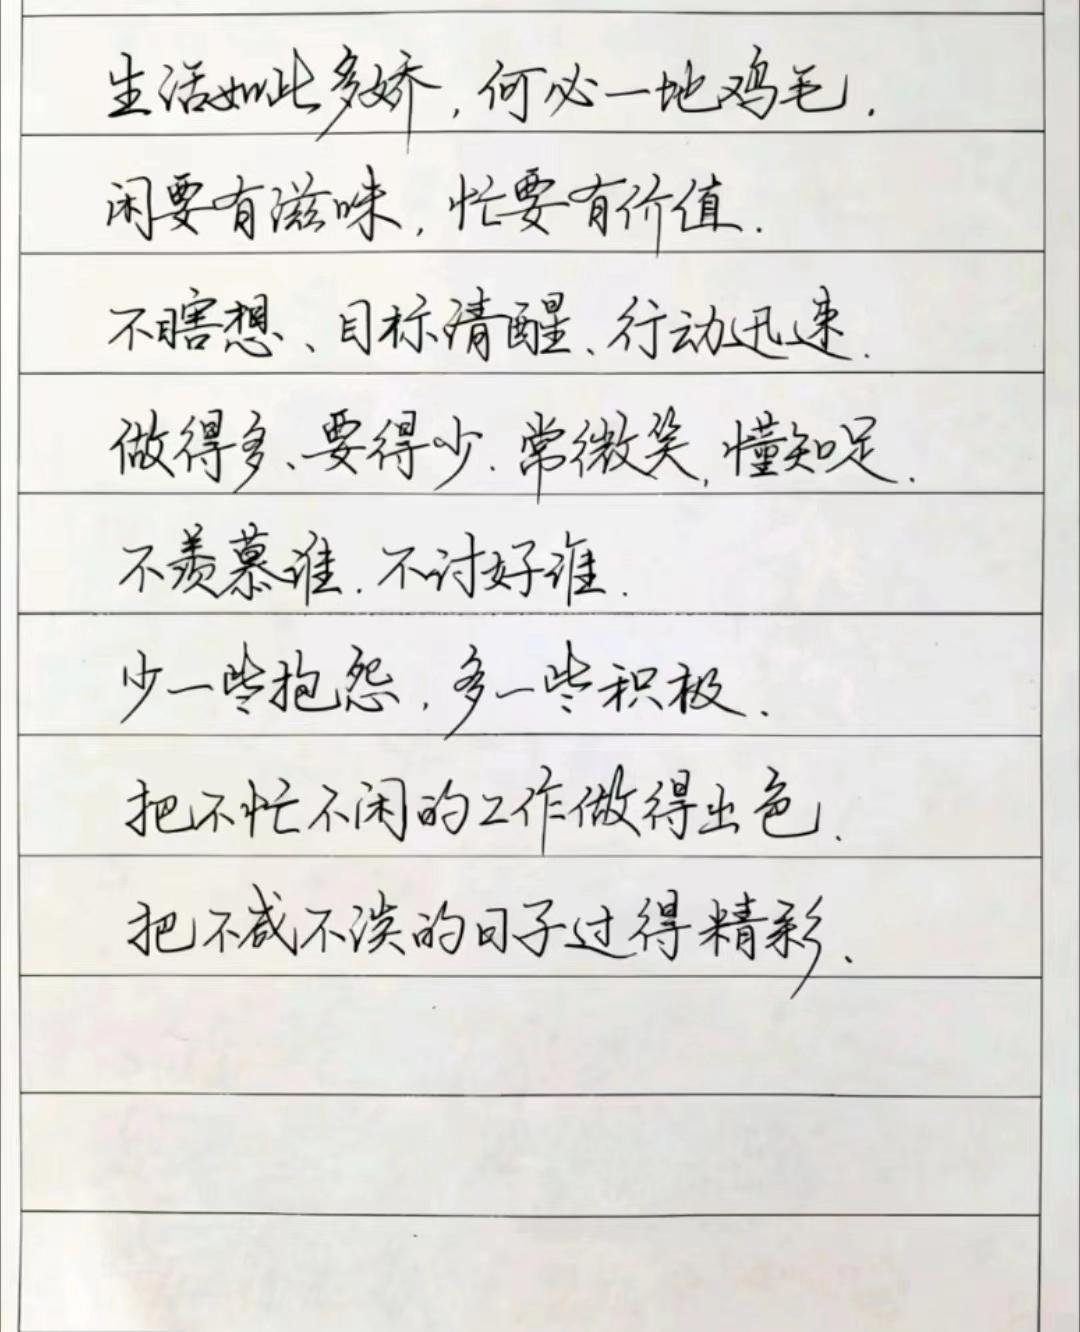 生活如此多娇，何必一地鸡毛.
闲要有滋味，忙要有价值.
不瞎想、目标清醒、行动迅速.
做得多、要得少.常微笑,懂知足.
不羡慕谁.不讨好谁.
少一些抱怨，多一些积极.
把不忙不闲的工作做得出色.
把不咸不淡的日子过得精彩.